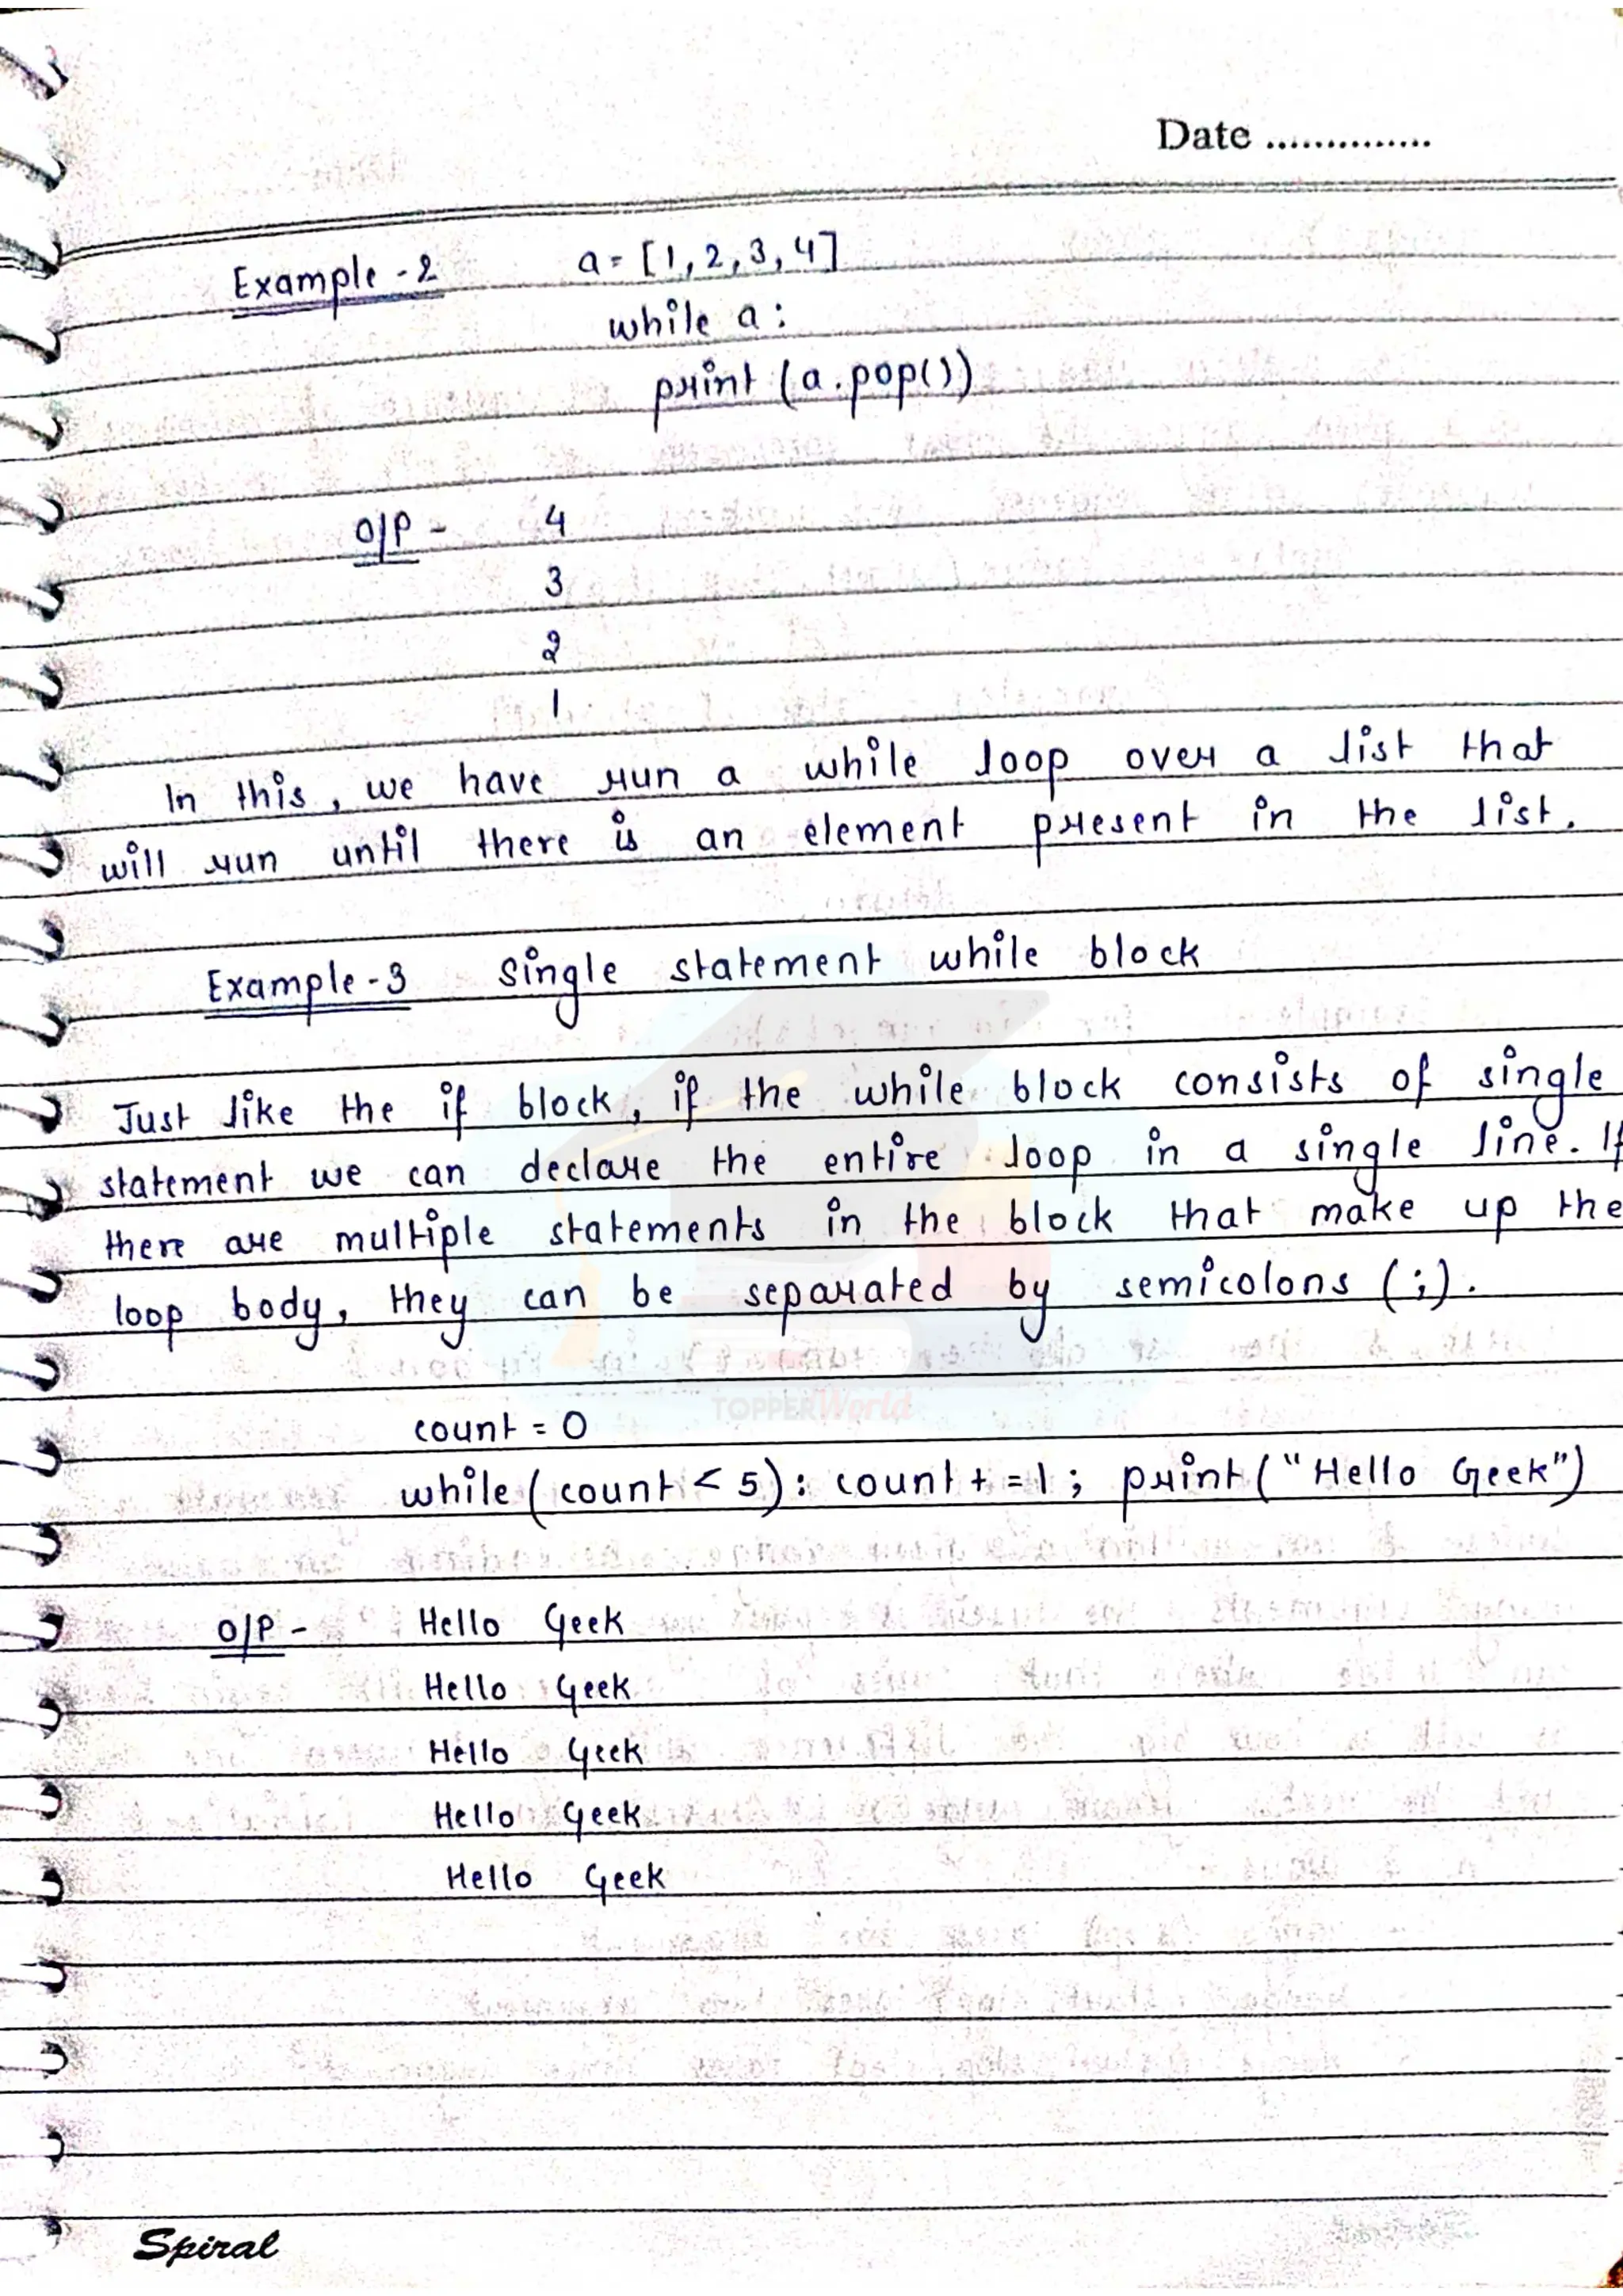 Date ..............
Example -2 a = [1, 2, 3, 4]
while a :
print (a.pop())
O/P - 4
3
2
1
In this, we have run a while loop over a list that
will run until there is an element present in the list.
Example -3 Single statement while block
Just like the if block, if the while block consists of single
statement we can declare the entire loop in a single line. If
there are multiple statements in the block that make up the
loop body, they can be separated by semicolons (;).
TOPPERWorld
count = 0
while (count < 5) : count + = 1 ; print ("Hello Geek")
O/P - Hello Geek
Hello Geek
Hello Geek
Hello Geek
Hello Geek
Spiral